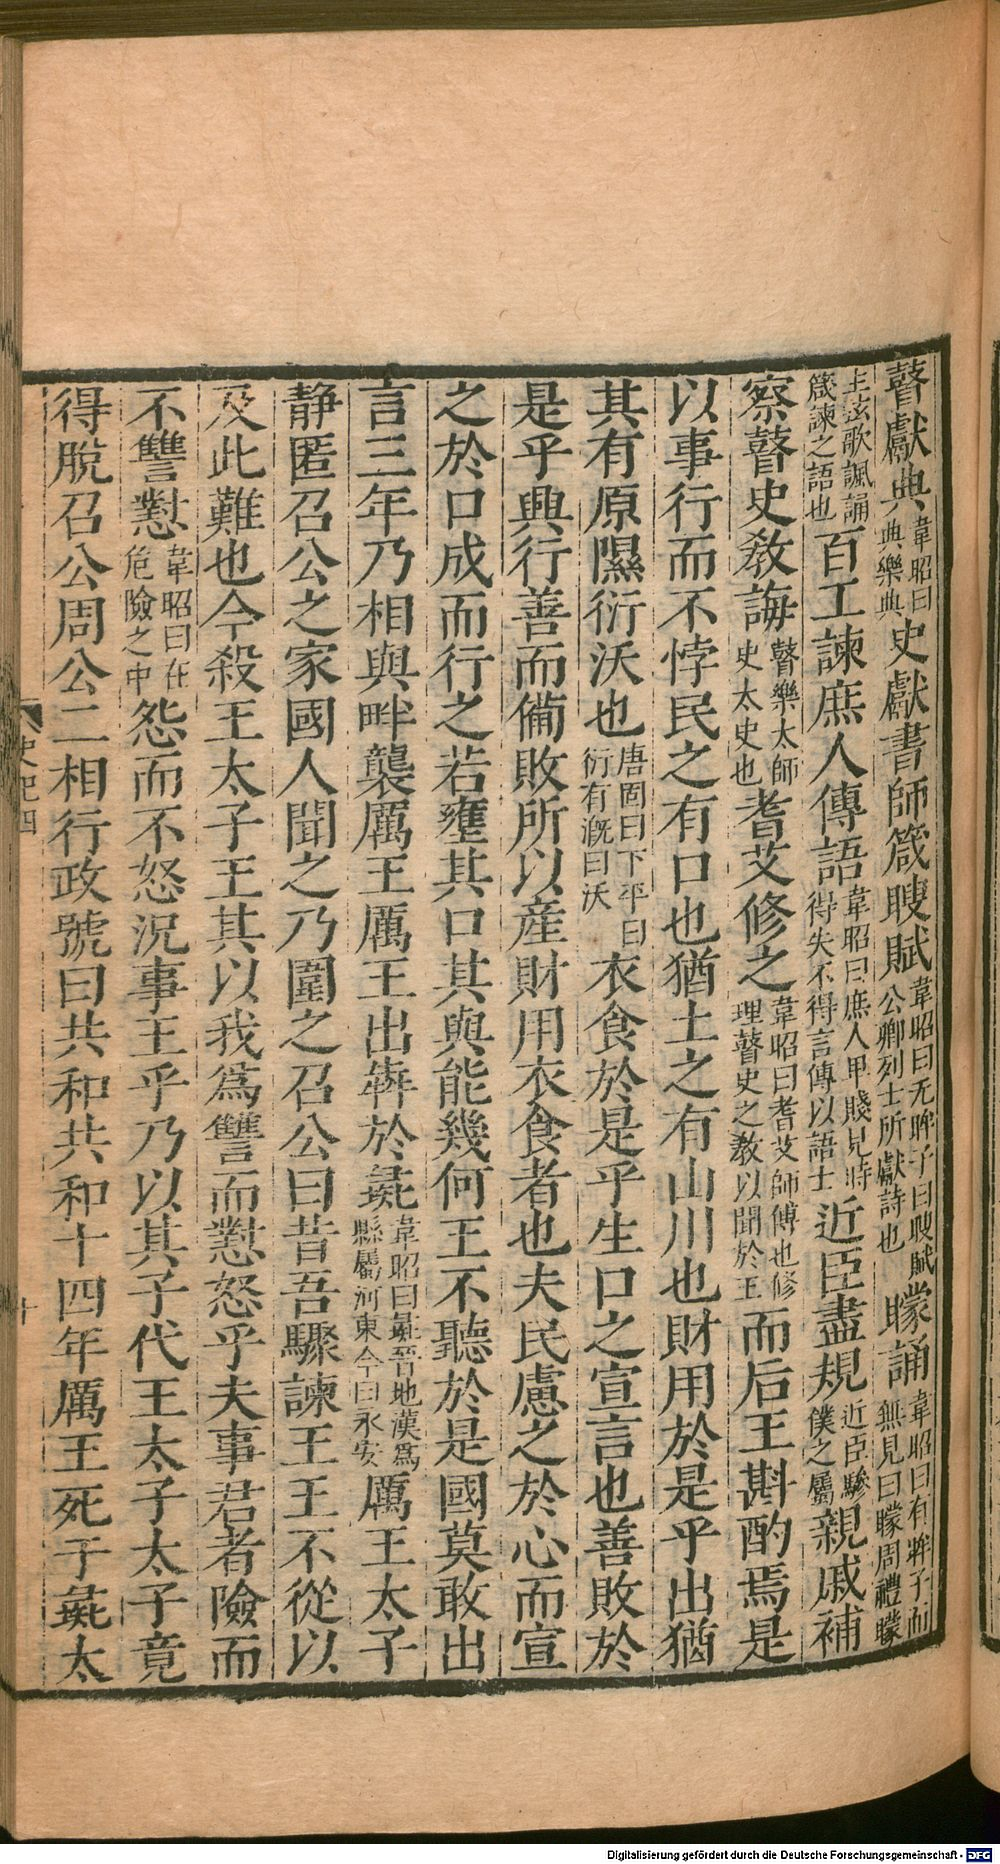 瞽獻典韋昭曰典樂典史獻書師箴瞍賦韋昭曰无眸子曰瞍賦公卿列士所獻詩也矇誦韋昭曰有眸子而無見曰矇周禮矇
主弦歌諷誦箴諫之語也百工諫庶人傳語韋昭曰庶人卑賤見時得失不得言傳以語士近臣盡規近臣驂僕之屬親戚補
察瞽史敎誨瞽樂太師史太史也耆艾修之韋昭曰耆艾師傅也修理瞽史之敎以聞於王而后王斟酌焉是
以事行而不悖民之有口也猶土之有山川也財用於是乎出猶
其有原隰衍沃也唐固曰下平曰衍有溉曰沃衣食於是乎生口之宣言也善敗於
是乎興行善而備敗所以産財用衣食者也夫民慮之於心而宣
之於口成而行之若壅其口其與能幾何王不聽於是國莫敢出
言三年乃相與畔襲厲王厲王出犇於彘韋昭曰彘晉地漢爲縣屬河東今曰永安厲王太子
静匿召公之家國人聞之乃圍之召公曰昔吾驟諫王王不從以
及此難也今殺王太子王其以我爲讐而懟怒乎夫事君者險而
不讐懟韋昭曰在危險之中怨而不怒況事王乎乃以其子代王太子太子竟
得脫召公周公二相行政號曰共和共和十四年厲王死于彘太
史記四
十
Digitalisierung gefördert durch die Deutsche Forschungsgemeinschaft - DFG